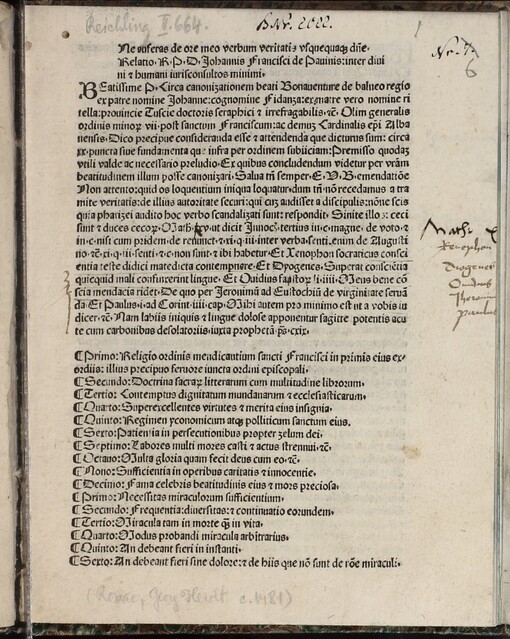 Reichling II.664.
Ne auferas de ore meo verbum veritatis vsquequaq̄ dn̄e.
Relatio R. P. D. Johannis Francisci de Pauinis: inter diui
ni ⁊ humani iurisconsultos minimi.
BEatissime P. Circa canonizationem beati Bonauenture de balneo regio
ex patre nomine Johanne: cognomine Fidanza: ex matre vero nomine ri
tella: prouincie Tuscie doctoris seraphici ⁊ irrefragabilis, ⁊c̄. Olim generalis
ordinis minoꝝ vij. post sanctum Franciscum: ac demuꝫ Cardinalis ep̄i Alba
nensis. Dico precipue consideranda esse ⁊ attendenda que dicturus sum: circa
xx. puncta siue fundamenta que infra per ordinem subijciam: Permisso quodaꝫ
vtili valde ac necessario preludio. Ex quibus concludendum videtur per vr̄am
beatitudinem illum posse canonizari. Salua tn̄ semper. E. V. B. emendatiōe
Non attento: quid os loquentium iniqua loquatur: dum tn̄ nō recedamus a tra
mite veritatis: de illius autoritate securi: qui cuꝫ audisset a discipulis: nōne scis
quia pharizei audito hoc verbo scandalizati sunt: respondit. Sinite illos: ceci
sunt ⁊ duces cecoꝝ. Math. xv. ut dicit Innoc. tertius in c. magne. de voto. ⁊
in c. nisi cum pridem. de renunc. ⁊ xi. q. iij. inter verba. senti. enim de Augusti
no. ⁊c̄. xi. q. iij. senti. ⁊ c. non sunt. ⁊ ibi habetur. Et Xenophon socraticus consci
entia teste didici maledicta contempnere. Et Dyogenes. Superat conscientia
quicquid mali confinxerint lingue. Et Ouidius fastoꝝ. li. iiij. Mens bene cō
scia mendacia ridet. De quo per Jeronimū ad Eustochiū de virginitate seruā
da. Et Paulus. i. ad Corint. iiij. cap. Mihi autem pro minimo est ut a vobis iu
dicer. ⁊c̄. Nam labijs iniquis ⁊ lingue dolose apponentur sagitte potentis acu
te cum carbonibus desolatorijs. iuxta prophetā. ps. cxix.
Math. x
Xenophon
Diogenes
Ouidius
Iheronim
Paulus
¶ Primo: Religio ordinis mendicantium sancti Francisci in primis eius ex-
ordijs: illius precipuo feruore iuncta ordini episcopali.
¶ Secundo: Doctrina sacraꝝ litterarum cum multitudine librorum.
¶ Tertio: Contemptus dignitatum mundanarum ⁊ ecclesiasticarum.
¶ Quarto: Superexcellentes virtutes ⁊ merita eius insignia.
¶ Quinto: Regimen yconomicum atqꝫ politicum sanctum eius.
¶ Sexto: Patientia in persecutionibus propter zelum dei.
¶ Septimo: Labores multi mores casti ⁊ actus strennui. ⁊c̄.
¶ Octauo: Multa gloria quam fecit deus cum eo. ⁊c̄.
¶ Nono: Sufficientia in operibus caritatis ⁊ innocentie.
¶ Decimo: Fama celebris beatitudinis eius ⁊ mors preciosa.
¶ Primo: Necessitas miraculorum sufficientium.
¶ Secundo: Frequentia: diuersitas: ⁊ continuatio eorundem.
¶ Tertio: Miracula tam in morte q̄ꝫ in vita.
¶ Quarto: Modus probandi miracula arbitrarius.
¶ Quinto: An debeant fieri in instanti.
¶ Sexto: An debeant fieri sine dolore: ⁊ de hijs que nō sunt de rōe miraculi.